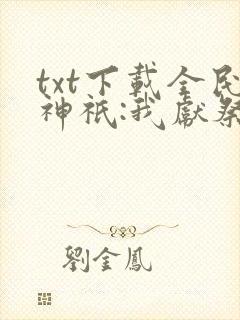 txt下載全民
神祇:我獻祭
劉金鳳